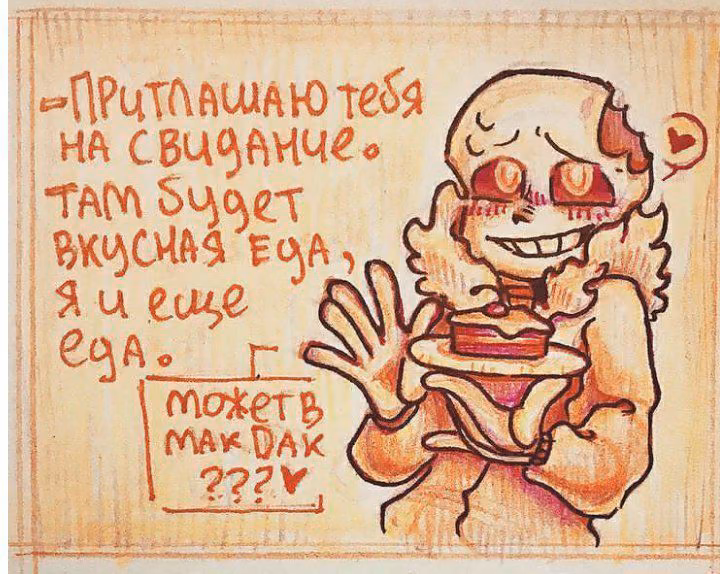 -Притлашаю тебя
на свидание.
там будет
вкусная еда,
я и еще
еда.
может в
мак Dак
???♥